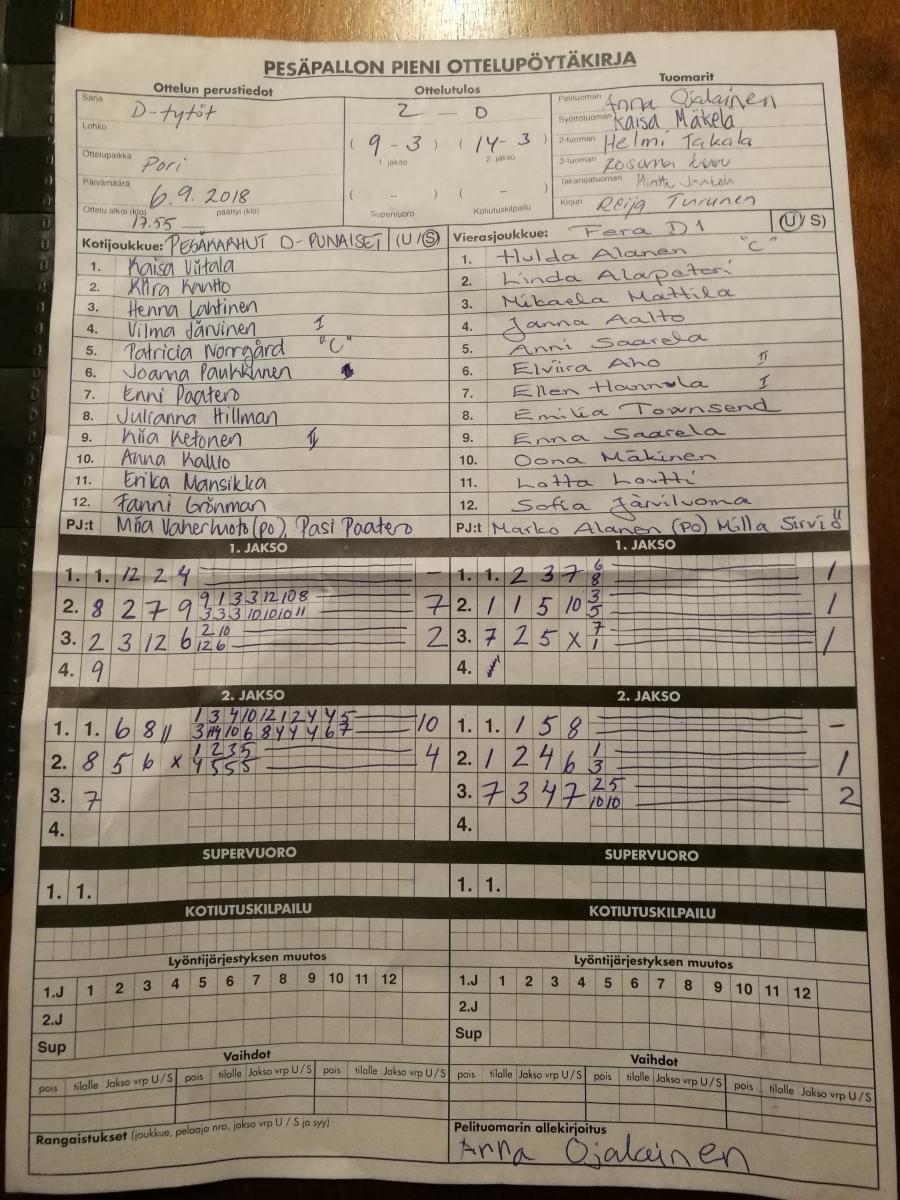 PESÄPALLON PIENI OTTELUPÖYTÄKIRJA
Ottelun perustiedot Ottelutulos Tuomarit
Sarja D-tytöt
Lohko
Ottelupaikka Pori
Päivämäärä 6.9.2018
Ottelu alkoi (klo) 17.55 päättyi (klo)
2 - 0
( 9 - 3 ) ( 14 - 3 )
1. jakso 2. jakso
( - ) ( - )
Supervuoro Kotiutuskilpailu
Pelituomari Anna Ojalainen
Syöttötuomari Kaisa Mäkelä
2-tuomari Helmi Takala
3-tuomari Rosanna
Takarajatuomari Minttu
Kirjuri Reija Turunen
Kotijoukkue: PESÄKARHUT D-PUNAISET (U/S)
1. Kaisa Viitala
2. Kiira Kantto
3. Henna Lahtinen
4. Vilma Järvinen I
5. Patricia Norrgård "C"
6. Joanna Pauhkunen
7. Enni Paatero
8. Julianna Hillman
9. Kiia Ketonen II
10. Anna Kallio
11. Erika Mansikka
12. Fanni Grönman
PJ:t Miia Vaherhuoto (po), Pasi Paatero
Vierasjoukkue: Fera D1 (U/S)
1. Hulda Alanen "C"
2. Linda Alapeteri
3. Mikaela Mattila
4. Janna Aalto
5. Anni Saarela
6. Elviira Aho II
7. Ellen Hannula I
8. Emilia Townsend
9. Enna Saarela
10. Oona Mäkinen
11. Lotta Lovtti
12. Sofia Järviluoma
PJ:t Marko Alanen (po) Milla Sirviö
1. JAKSO
1. 1. 12 2 4 -
2. 8 2 7 9 9 1 3 3 12 10 8 7
3 3 3 10 10 10 11
3. 2 3 12 6 2 10 2
12 6
4. 9
1. JAKSO
1. 1. 2 3 7 6 1
8
2. 1 1 5 10 3 1
5
3. 7 2 5 x 7 1
1
4.
2. JAKSO
1. 1. 6 8 11 1 3 4 10 12 1 2 4 4 5 10
3 11 10 6 8 4 4 4 6 7
2. 8 5 6 x 1 2 3 5 4
4 5 5 5
3. 7
4.
2. JAKSO
1. 1. 1 5 8 -
2. 1 2 4 6 1 1
3
3. 7 3 4 7 2 5 2
10 10
4.
SUPERVUORO SUPERVUORO
1. 1. 1. 1.
KOTIUTUSKILPAILU KOTIUTUSKILPAILU
Lyöntijärjestyksen muutos Lyöntijärjestyksen muutos
1.J 1 2 3 4 5 6 7 8 9 10 11 12 1.J 1 2 3 4 5 6 7 8 9 10 11 12
2.J 2.J
Sup Sup
Vaihdot Vaihdot
pois tilalle Jakso vrp U/S pois tilalle Jakso vrp U/S pois tilalle Jakso vrp U/S pois tilalle Jakso vrp U/S pois tilalle Jakso vrp U/S pois tilalle Jakso vrp U/S
Rangaistukset (joukkue, pelaaja nro, jakso vrp U / S ja syy)
Pelituomarin allekirjoitus
Anna Ojalainen